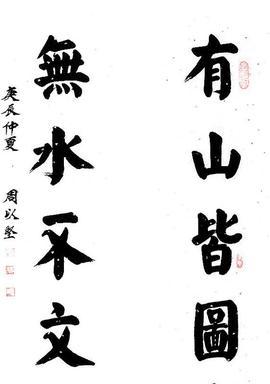 有山皆圖
無水不文
庚辰仲夏 周以堅